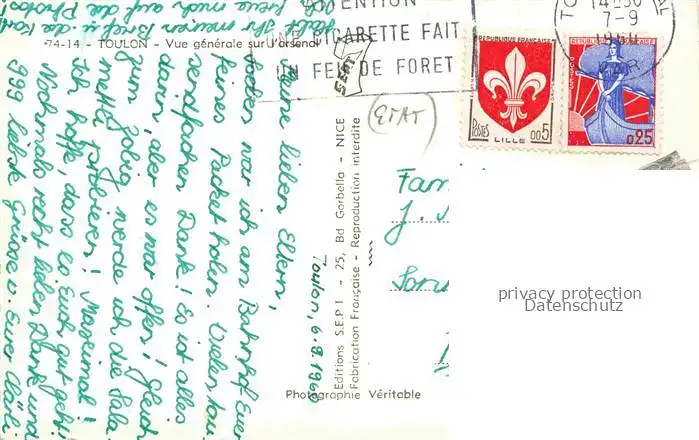 74-14 - TOULON - Vue générale sur l'arsenal
TENTION
UNE CIGARETTE FAIT
UN FEU DE FORET
SEPT
14 30
7-9
1960
REPUBLIQUE FRANÇAISE
POSTES
0.05
LILLE
REPUBLIQUE FRANÇAISE
POSTES
0.25
(ETAT)
Toulon, 6.9.1960
Meine lieben Eltern,
soeben war ich am Bahnhof Euer
kleines Packet holen. Vielen tau
sendfachen Dank! Es ist alles
darin, aber es war offen! Gleich
zum
werde ich die Sala
metti probieren! Mmmm!
Ich hoffe, dass es Euch gut geht.
Nochmals recht lieben Dank und
999 liebste Grüsse v. Eure
Habt Ihr meinen Brief u. das
freue mich auf die Photos
Editions S.E.P.T - 25, Bd Garbella - NICE
Fabrication Française - Reproduction interdite
Photographie Véritable
Fam
J.
privacy protection
Datenschutz